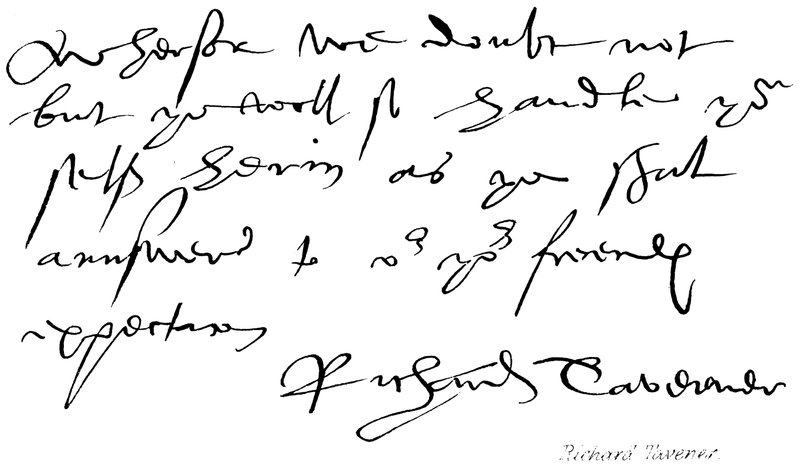 wherfore we doubt not
but ye woll so handle yor
self herin as ye shal
annswere to yor frend
expectacon
Richard Taverner
Richard Tavener.